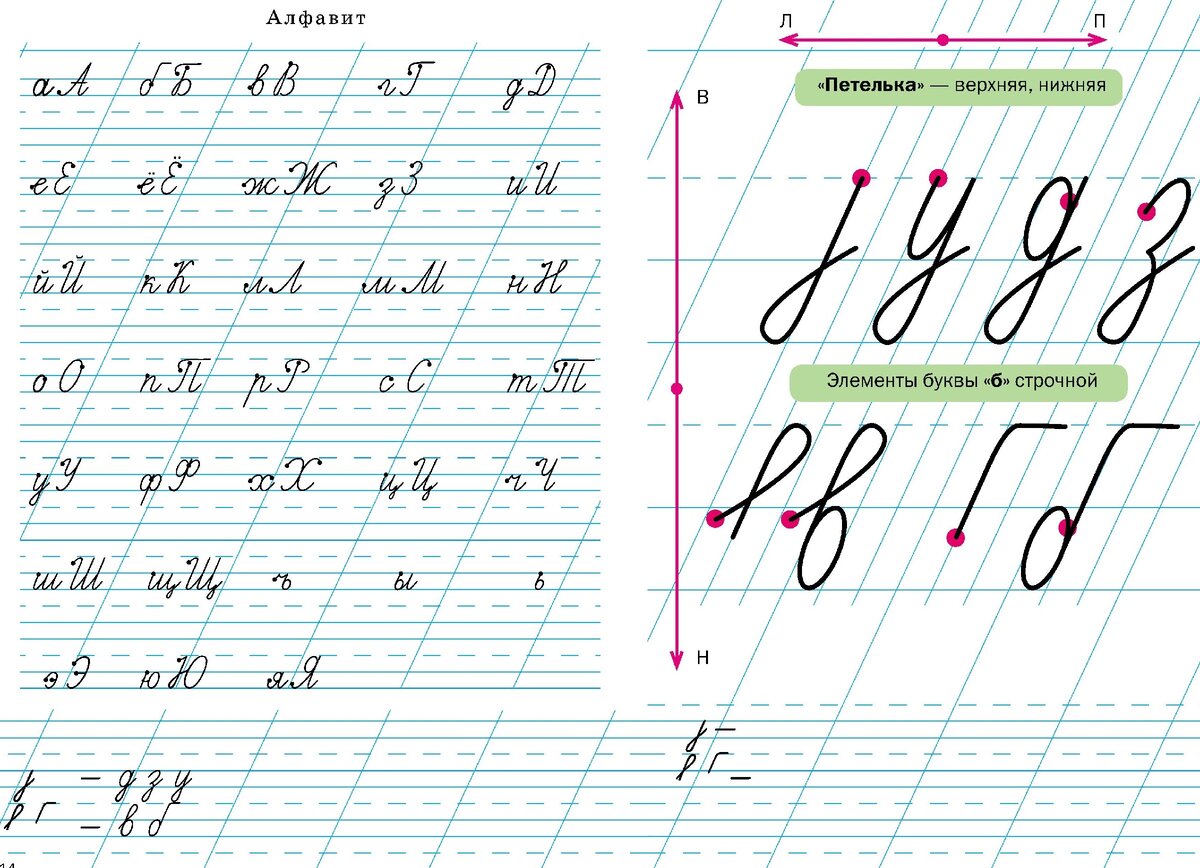 Алфавит
аА бБ вВ гГ дД
еЕ ёЁ жЖ зЗ иИ
йЙ кК лЛ мМ нН
оО пП рР сС тТ
уУ фФ хХ цЦ чЧ
шШ щЩ ъ ы ь
эЭ юЮ яЯ
– д з у
– в б
Л П
В
«Петелька» — верхняя, нижняя
у д з
Элементы буквы «б» строчной
в б
Н